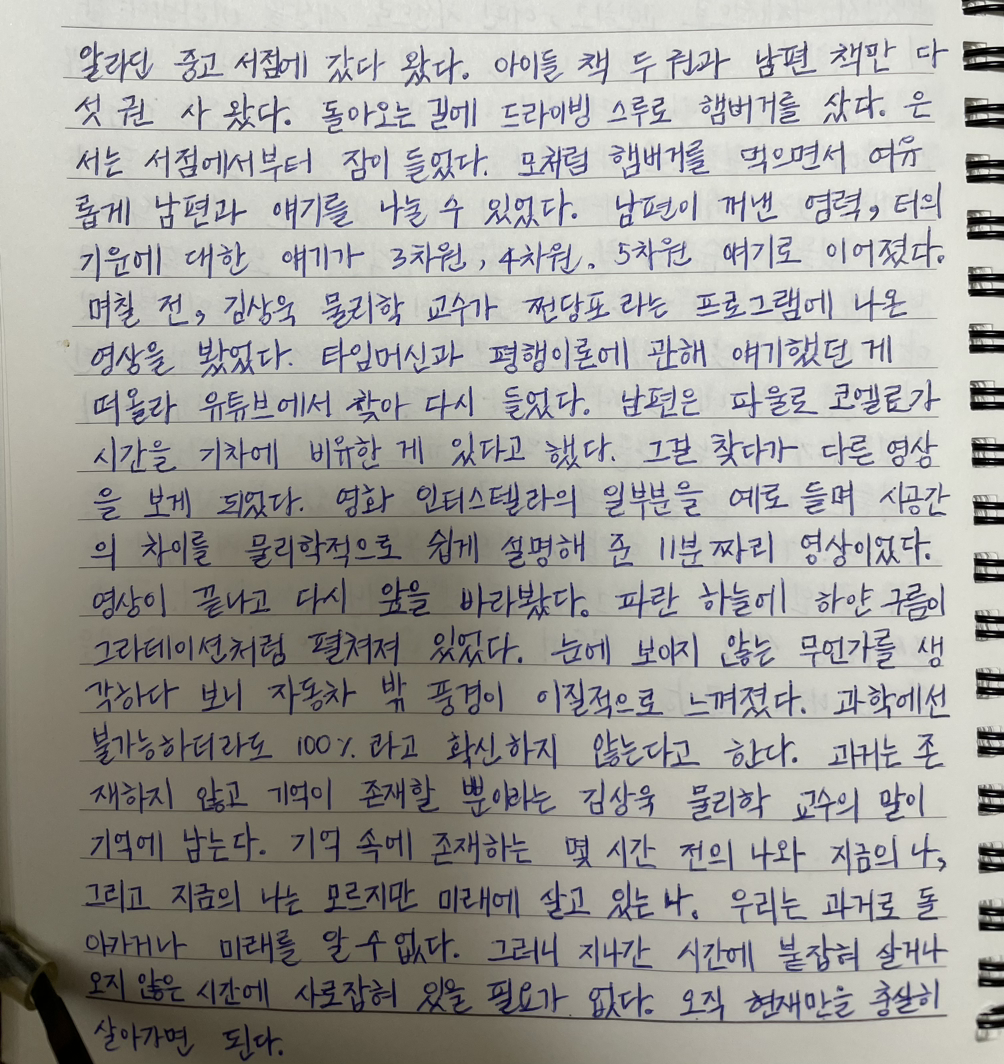 알라딘 중고 서점에 갔다 왔다. 아이들 책 두 권과 남편 책만 다
섯 권 사 왔다. 돌아오는 길에 드라이빙 스루로 햄버거를 샀다. 은
서는 서점에서부터 잠이 들었다. 모처럼 햄버거를 먹으면서 여유
롭게 남편과 얘기를 나눌 수 있었다. 남편이 꺼낸 염력, 터의
기운에 대한 얘기가 3차원, 4차원, 5차원 얘기로 이어졌다.
며칠 전, 김상욱 물리학 교수가 쩐당포라는 프로그램에 나온
영상을 봤었다. 타임머신과 평행이론에 관해 얘기했던 게
떠올라 유튜브에서 찾아 다시 들었다. 남편은 파울로 코엘료가
시간을 기차에 비유한 게 있다고 했다. 그걸 찾다가 다른 영상
을 보게 되었다. 영화 인터스텔라의 일부분을 예로 들며 시공간
의 차이를 물리학적으로 쉽게 설명해 준 11분 짜리 영상이었다.
영상이 끝나고 다시 앞을 바라봤다. 파란 하늘에 하얀 구름이
그라데이션처럼 펼쳐져 있었다. 눈에 보이지 않는 무언가를 생
각하다 보니 자동차 밖 풍경이 이질적으로 느껴졌다. 과학에선
불가능하더라도 100%라고 확신하지 않는다고 한다. 과거는 존
재하지 않고 기억이 존재할 뿐이라는 김상욱 물리학 교수의 말이
기억에 남는다. 기억 속에 존재하는 몇 시간 전의 나와 지금의 나,
그리고 지금의 나는 모르지만 미래에 살고 있는 나. 우리는 과거로 돌
아가거나 미래를 알 수 없다. 그러니 지나간 시간에 붙잡혀 살거나
오지 않은 시간에 사로잡혀 있을 필요가 없다. 오직 현재만을 충실히
살아가면 된다.